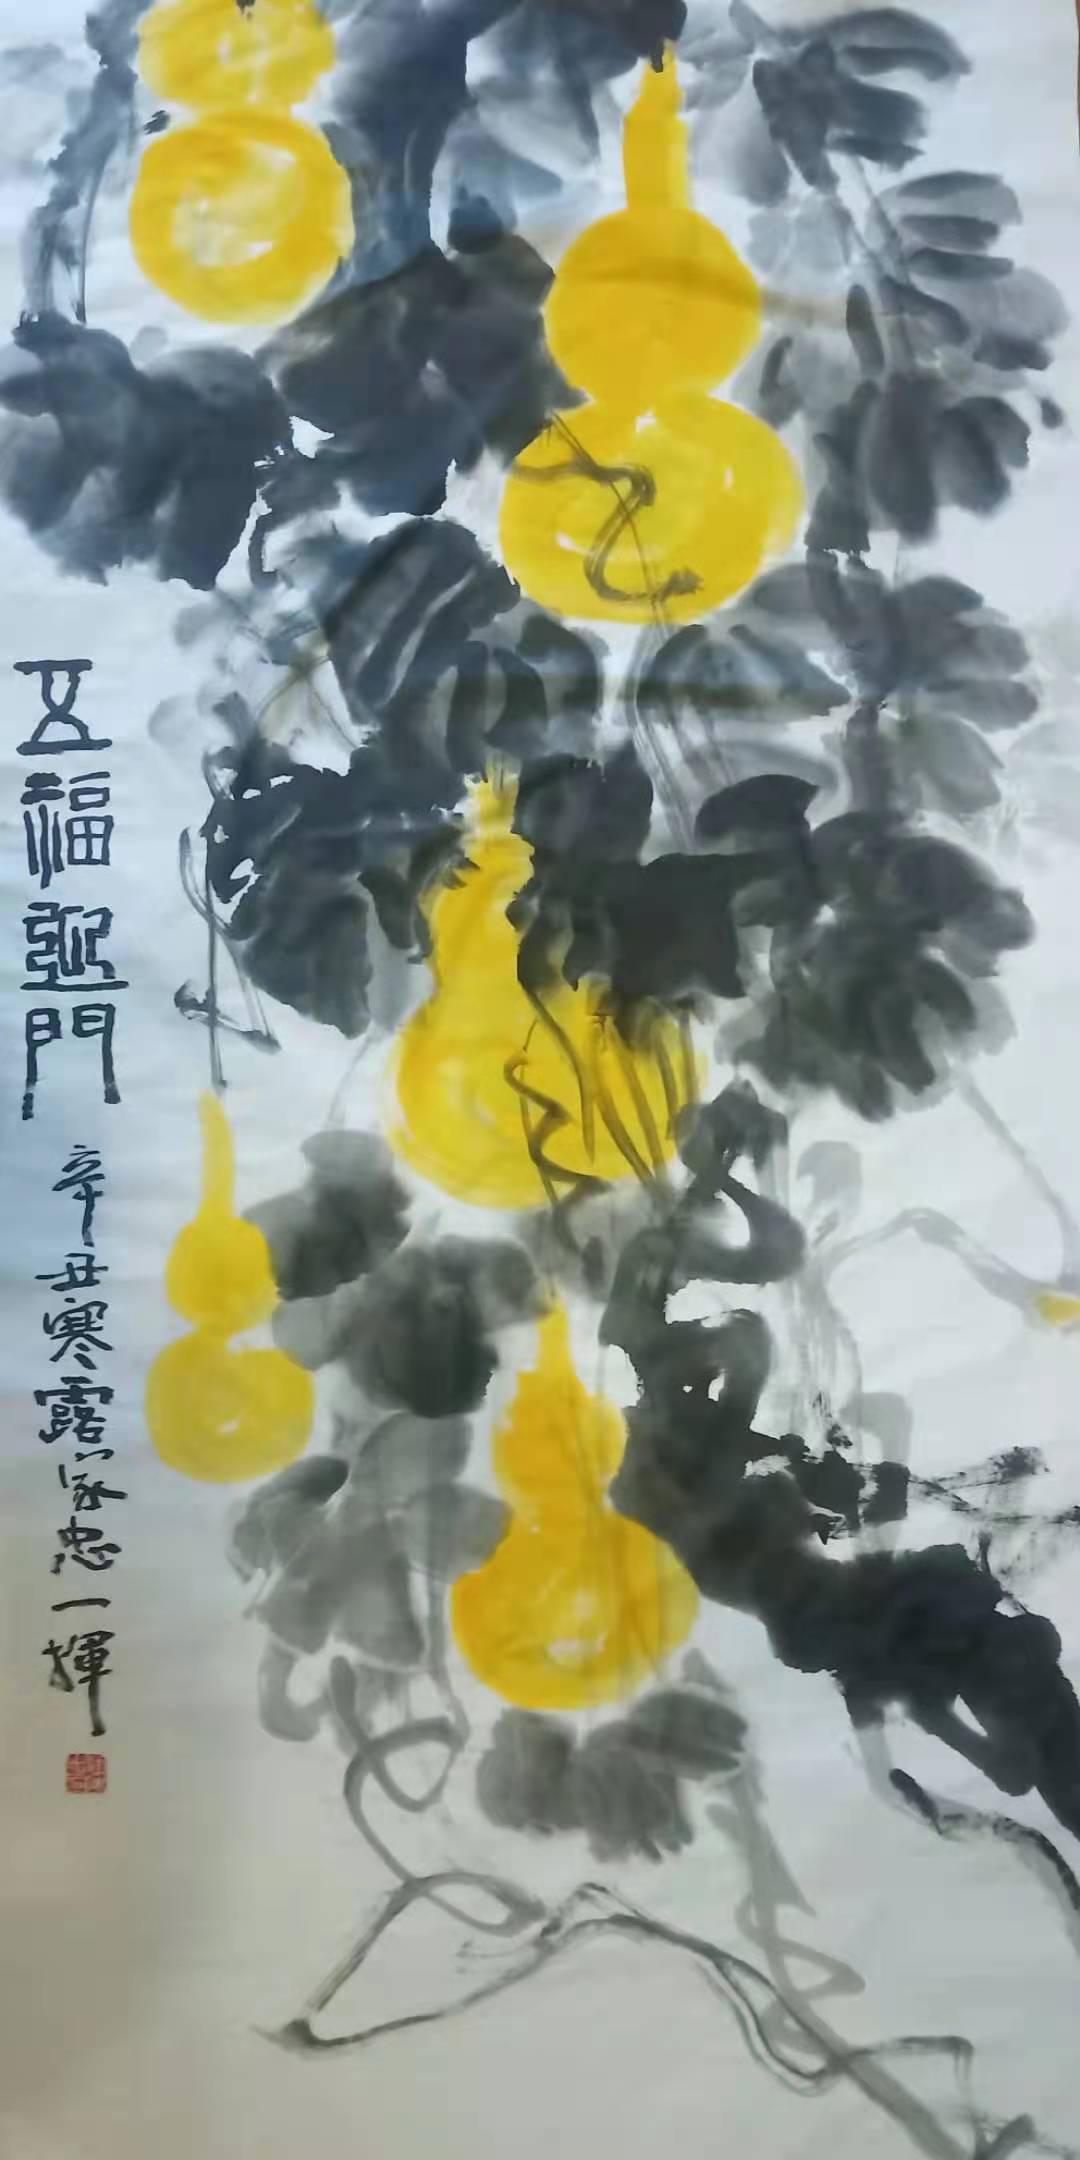 五福迎門
辛丑寒露家忠一揮